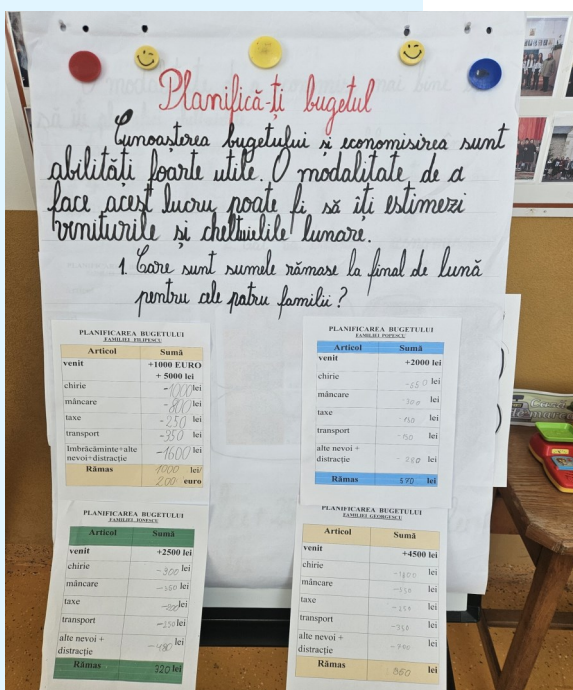 Planifică-ți bugetul
Cunoașterea bugetului și economisirea sunt
abilități foarte utile. O modalitate de a
face acest lucru poate fi să îți estimezi
veniturile și cheltuielile lunare.
1. Care sunt sumele rămase la final de lună
pentru cele patru familii?
PLANIFICAREA BUGETULUI
FAMILIEI FILIPESCU
Articol Sumă
venit +1000 EURO
+ 5000 lei
chirie -1000 lei
mâncare -800 lei
taxe -250 lei
transport -350 lei
Imbrăcăminte+alte
nevoi+distracție -1600 lei
Rămas 1000 lei/
200 euro
PLANIFICAREA BUGETULUI
FAMILIEI POPESCU
Articol Sumă
venit +2000 lei
chirie lei
mâncare -300 lei
taxe -150 lei
transport -150 lei
alte nevoi +
distracție lei
Rămas lei
PLANIFICAREA BUGETULUI
FAMILIEI IONESCU
Articol Sumă
venit +2500 lei
chirie -300 lei
mâncare lei
taxe lei
transport lei
alte nevoi +
distracție lei
Rămas 320 lei
PLANIFICAREA BUGETULUI
FAMILIEI GEORGESCU
Articol Sumă
venit +4500 lei
chirie lei
mâncare lei
taxe lei
transport lei
alte nevoi +
distracție lei
Rămas lei